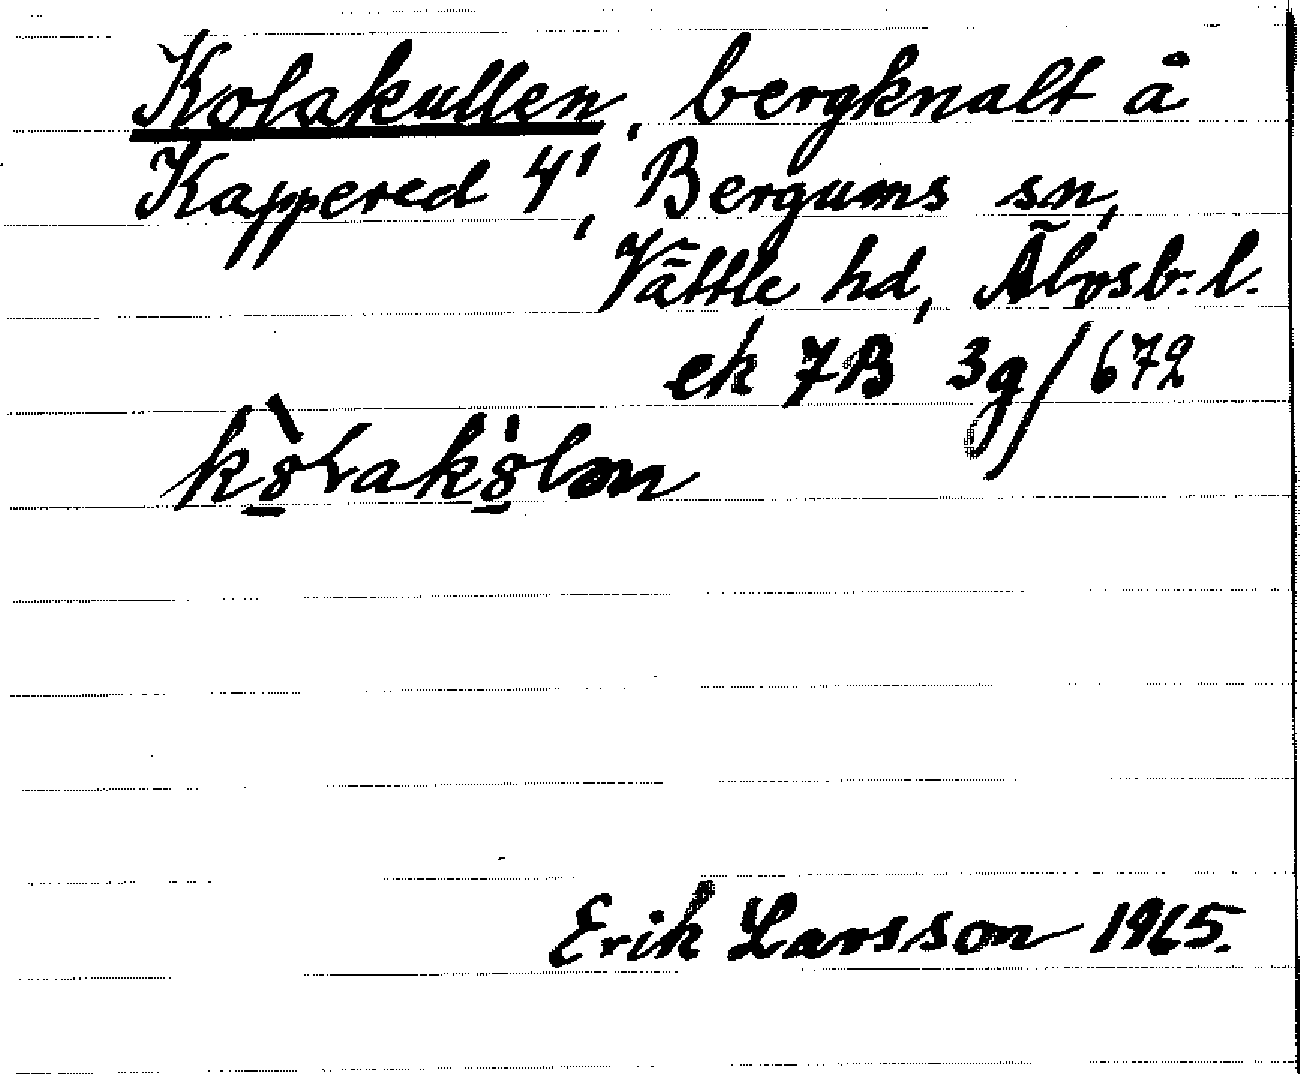 Kolakullen, bergknalt å
Kappered 4¹, Bergums sn,
Vättle hd, Älvsb. l.
ek 7B 3g/672
Erik Larsson 1965.